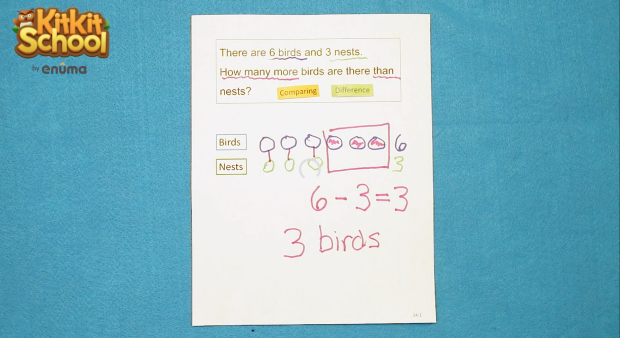 Kitkit
School
by enuma
There are 6 birds and 3 nests.
How many more birds are there than
nests? Comparing Difference
Birds 6
Nests 3
6 - 3 = 3
3 birds